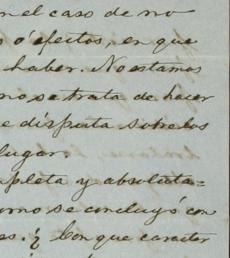 en el caso de no
o efectos, en que
haber. No estamos
no se trata de hacer
e disputa sobre los
lugar.
pleta y absoluta=
omo se concluyó con
es. ¿ Con que caracter